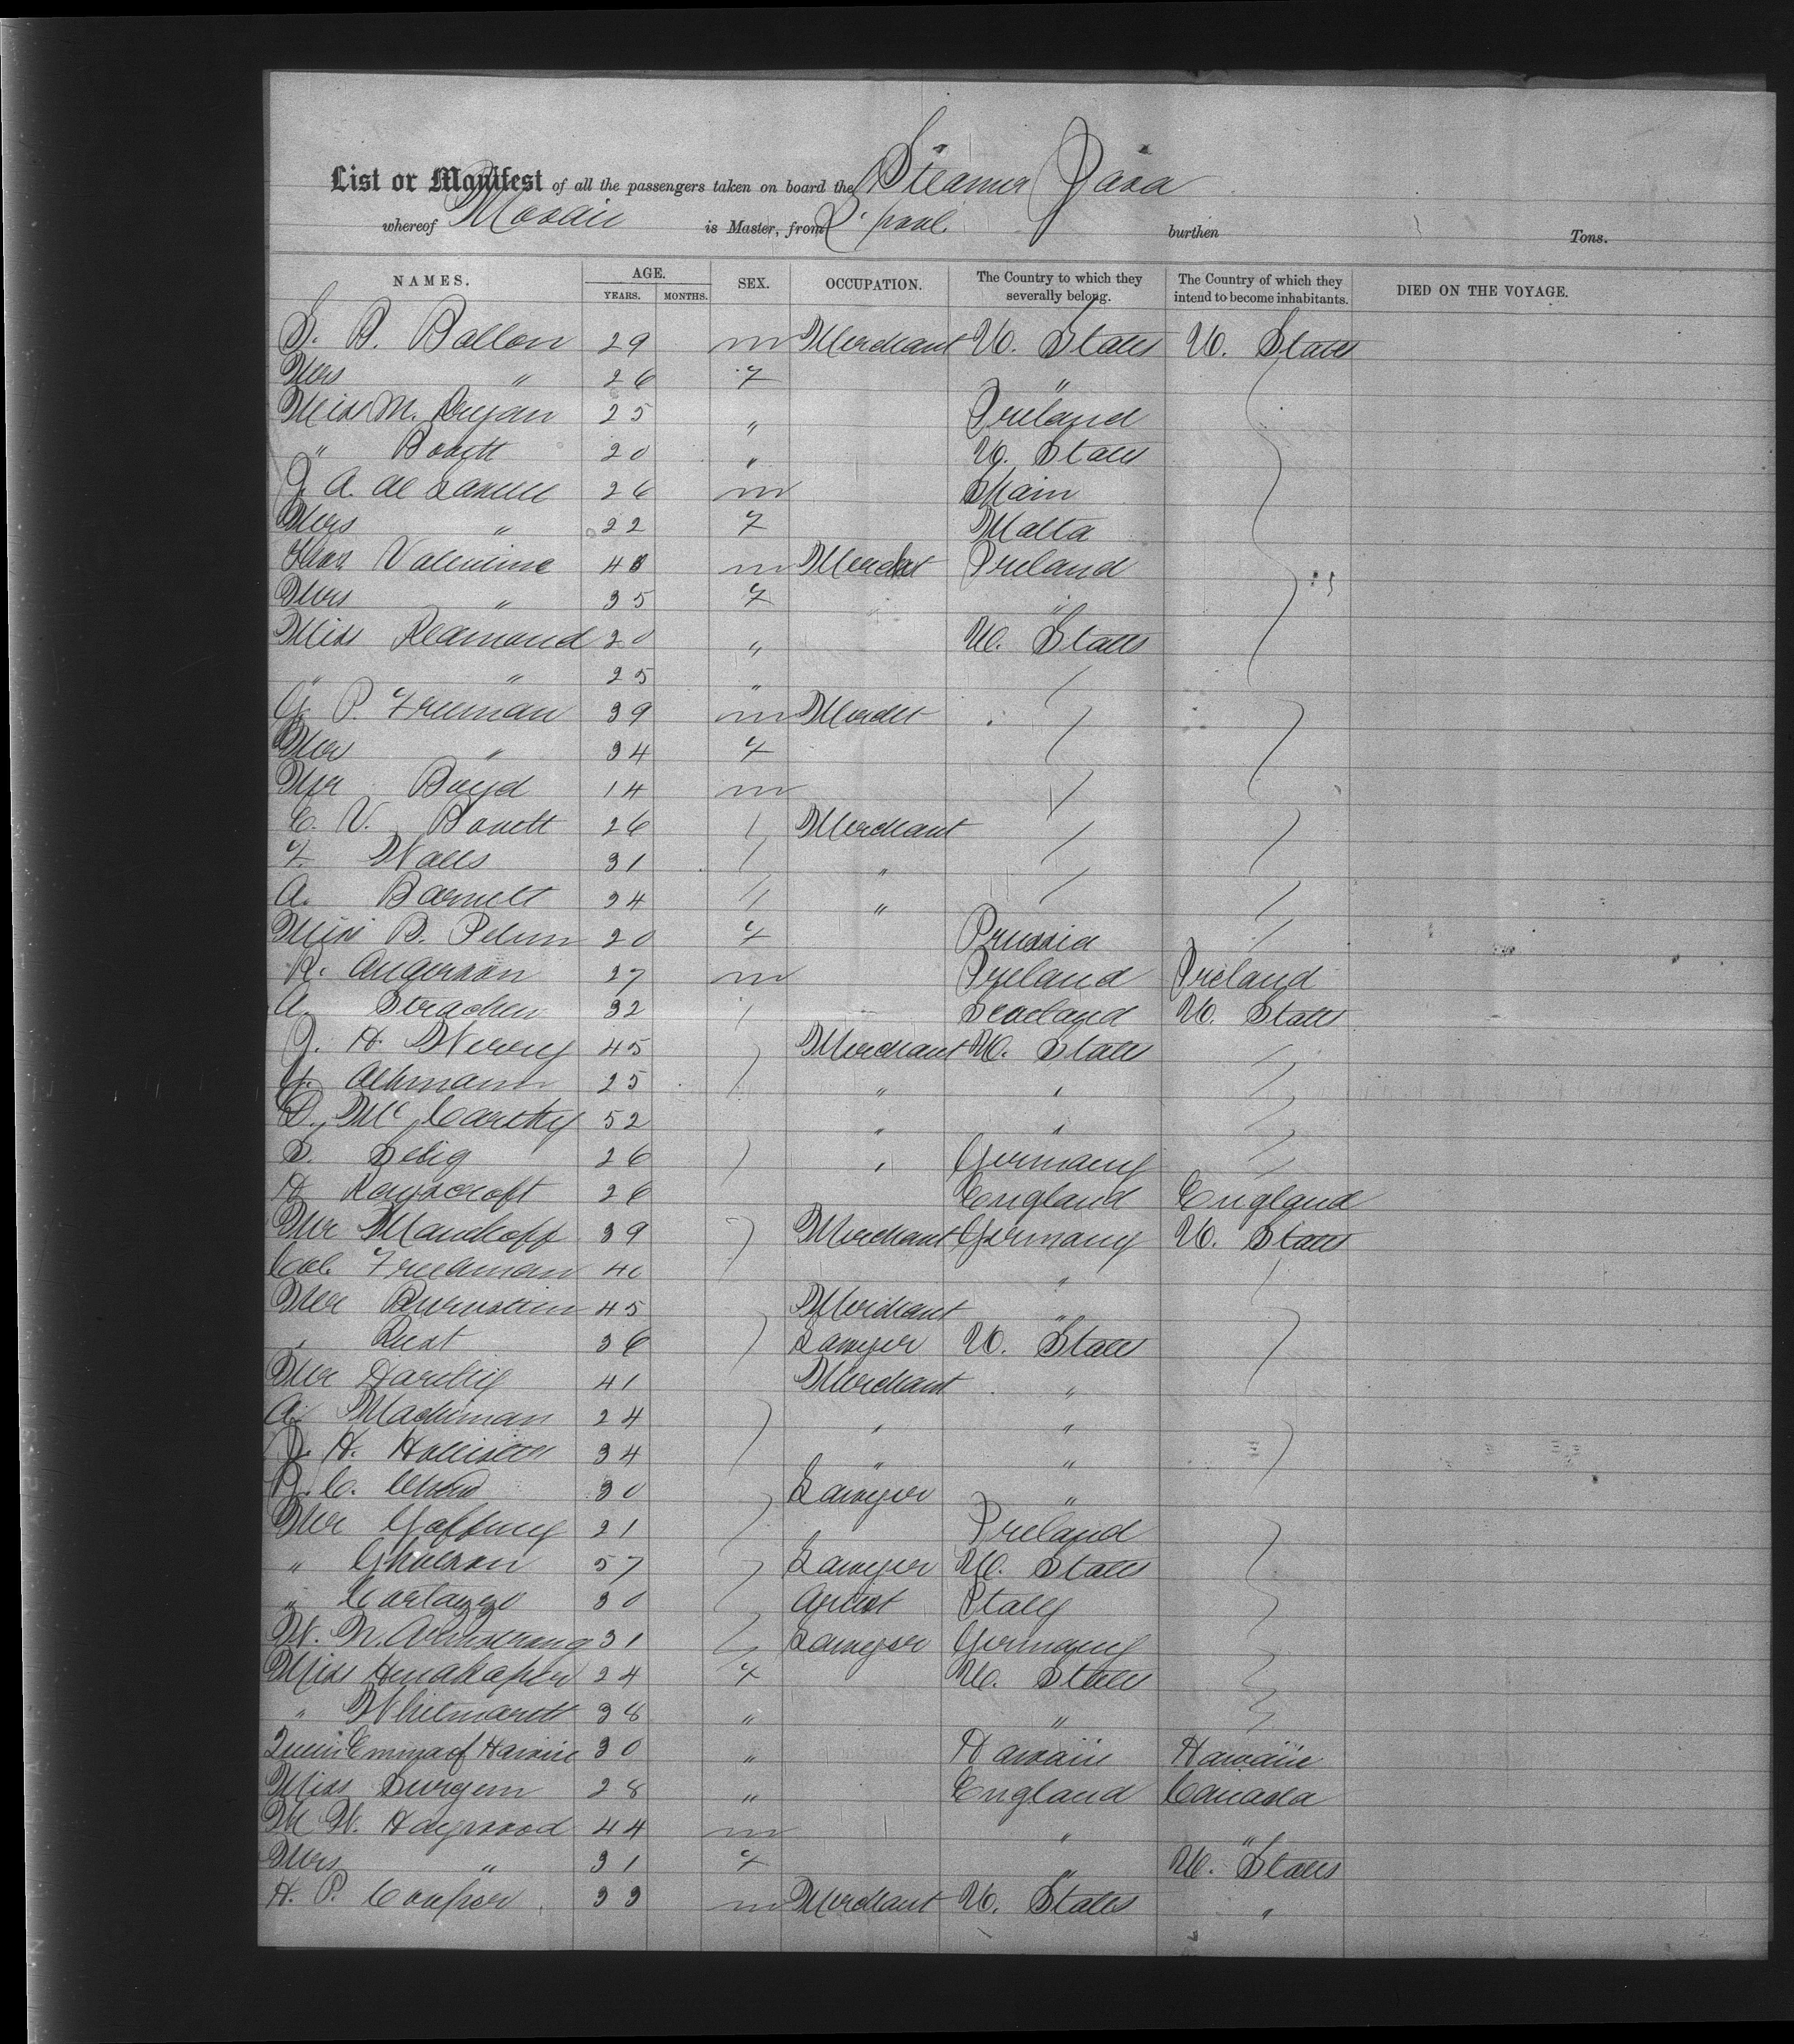 List or Manifest of all the passengers taken on board the Steamer Java
whereof Moodie is Master, from L'pool burthen Tons.
NAMES. AGE. SEX. OCCUPATION. The Country to which they severally belong. The Country of which they intend to become inhabitants. DIED ON THE VOYAGE.
YEARS. MONTHS.
S. B. Ballon 29 m Merchant U. States U. States
Mrs " 26 f "
Miss M. Bryan 25 " Ireland
" Bovett 20 " U. States
J. A. de 26 m Spain
Mrs " 22 f Malta
Valentine 48 m Merchat Ireland
Mrs " 35 f "
Miss Redmond 20 " U. States
" " 25 "
G. P. Freeman 39 m Mercht
Mrs " 34 f
Mr Boyd 14 m
C. V. Bovett 26 Merchant
F. Walls 31 "
A. Barnett 34 "
Miss B. 20 f Prussia
R. Anderson 27 m Ireland Ireland
A. Strachen 32 Scotland U. States
J. H. 45 Merchant U. States
25 " "
D. McCarthy 52 " "
S. Selig 26 " Germany
H Rayscroft 26 England England
Mr 39 Merchant Germany U. States
Col. Freedman 40 "
Mr Bernstein 45 Merchant "
" 36 Lawyer U. States
Mr 41 Merchant "
A. Machiman 24 " "
J. H. Hollister 34 " "
B. C. 30 Lawyer "
Mr Gaffney 21 Ireland
" Gholson 57 Lawyer U. States
" Carlazzo 30 Artist Italy
W. N. Armstrong 31 Lawyer Germany
Miss 24 f U. States
" 38 " "
Queen Emma of Hawaii 30 " Hawaiie Hawaiie
Miss Spurgeon 28 " England Canada
M W. Haywood 44 m " "
Mrs " 31 f " U. States
H. P. Cooper 33 m Merchant U. States "